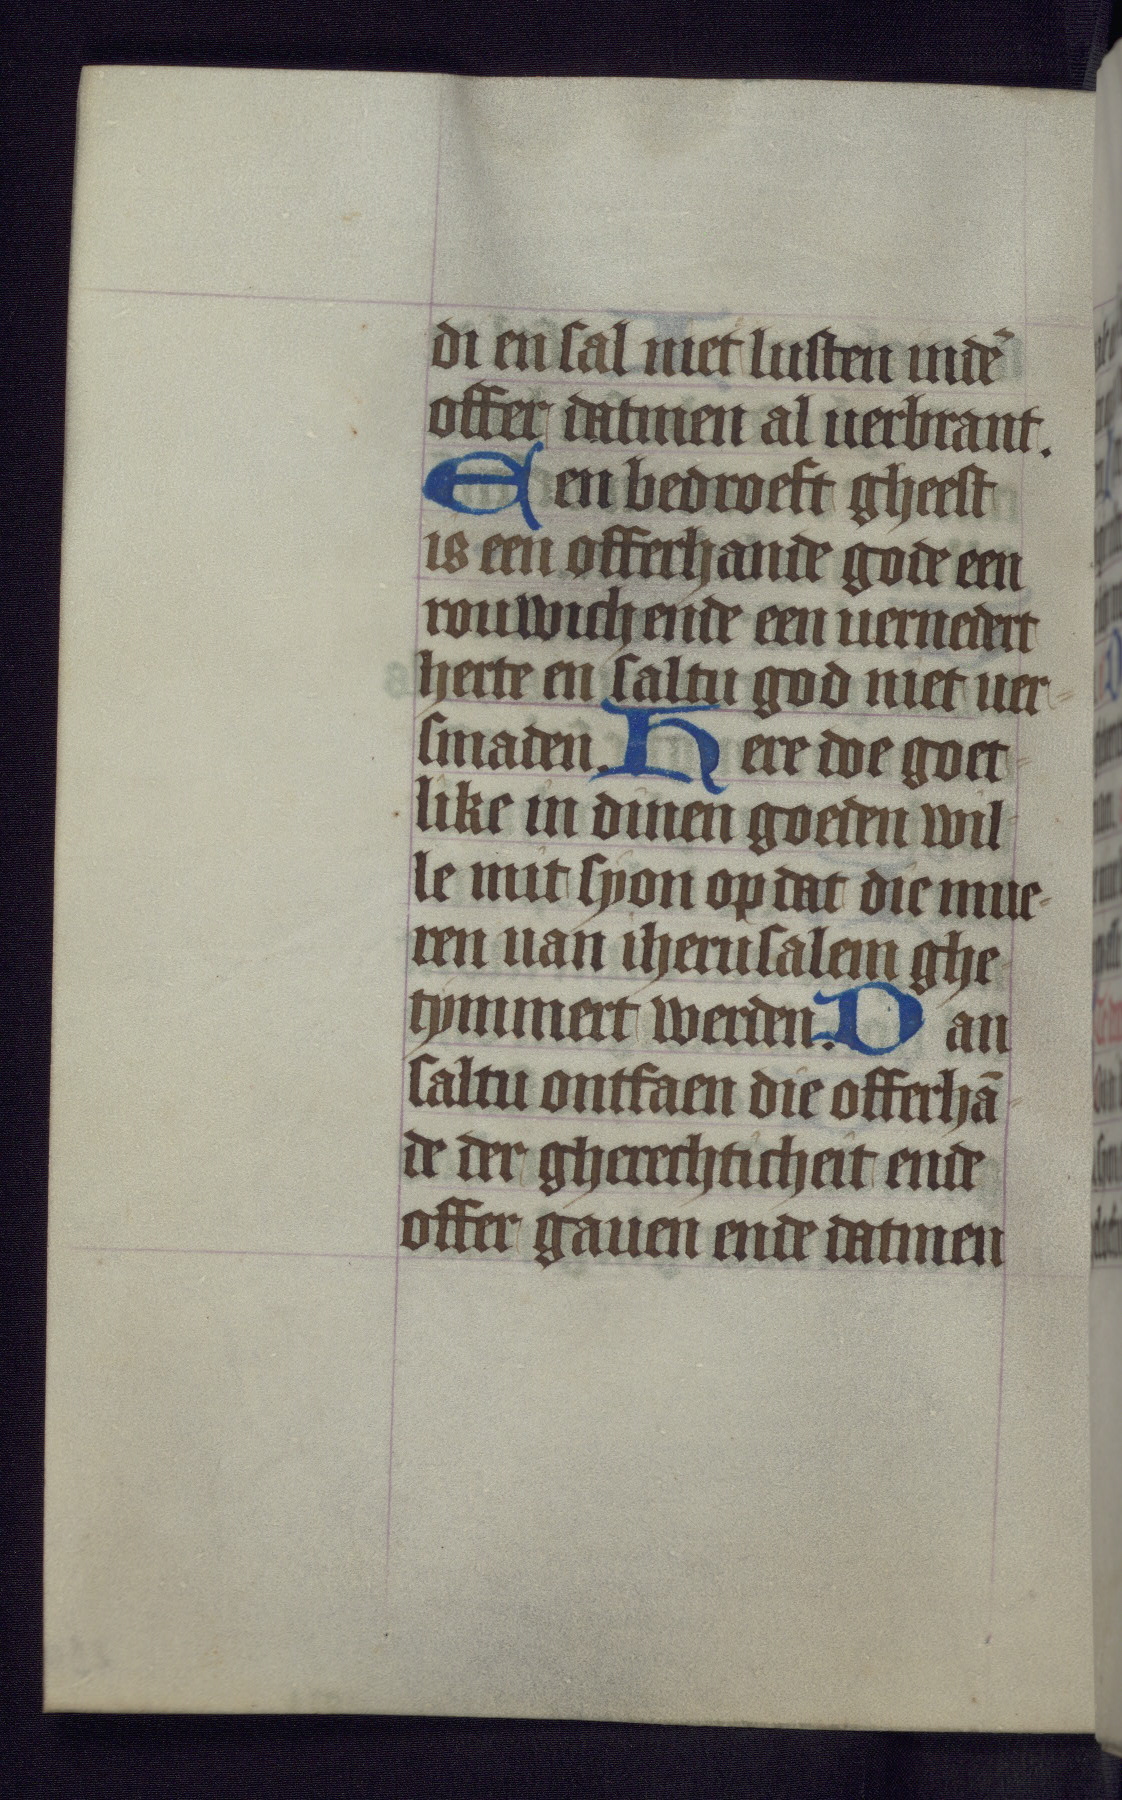 di en sal niet lusten indē
offer datmen al uerbrant.
Een bedroeft gheest
is een offerhande gode een
rouwich ende een uernedert
herte en saltu god niet uer-
smaden. Here doe goet-
like in dinen goeden wil-
le mit syon op dat die mue-
ren uan iherusalem ghe-
tymmert werden. Dan
saltu ontfaen die offerhā-
de der gherechticheit ende
offer gauen ende datmen